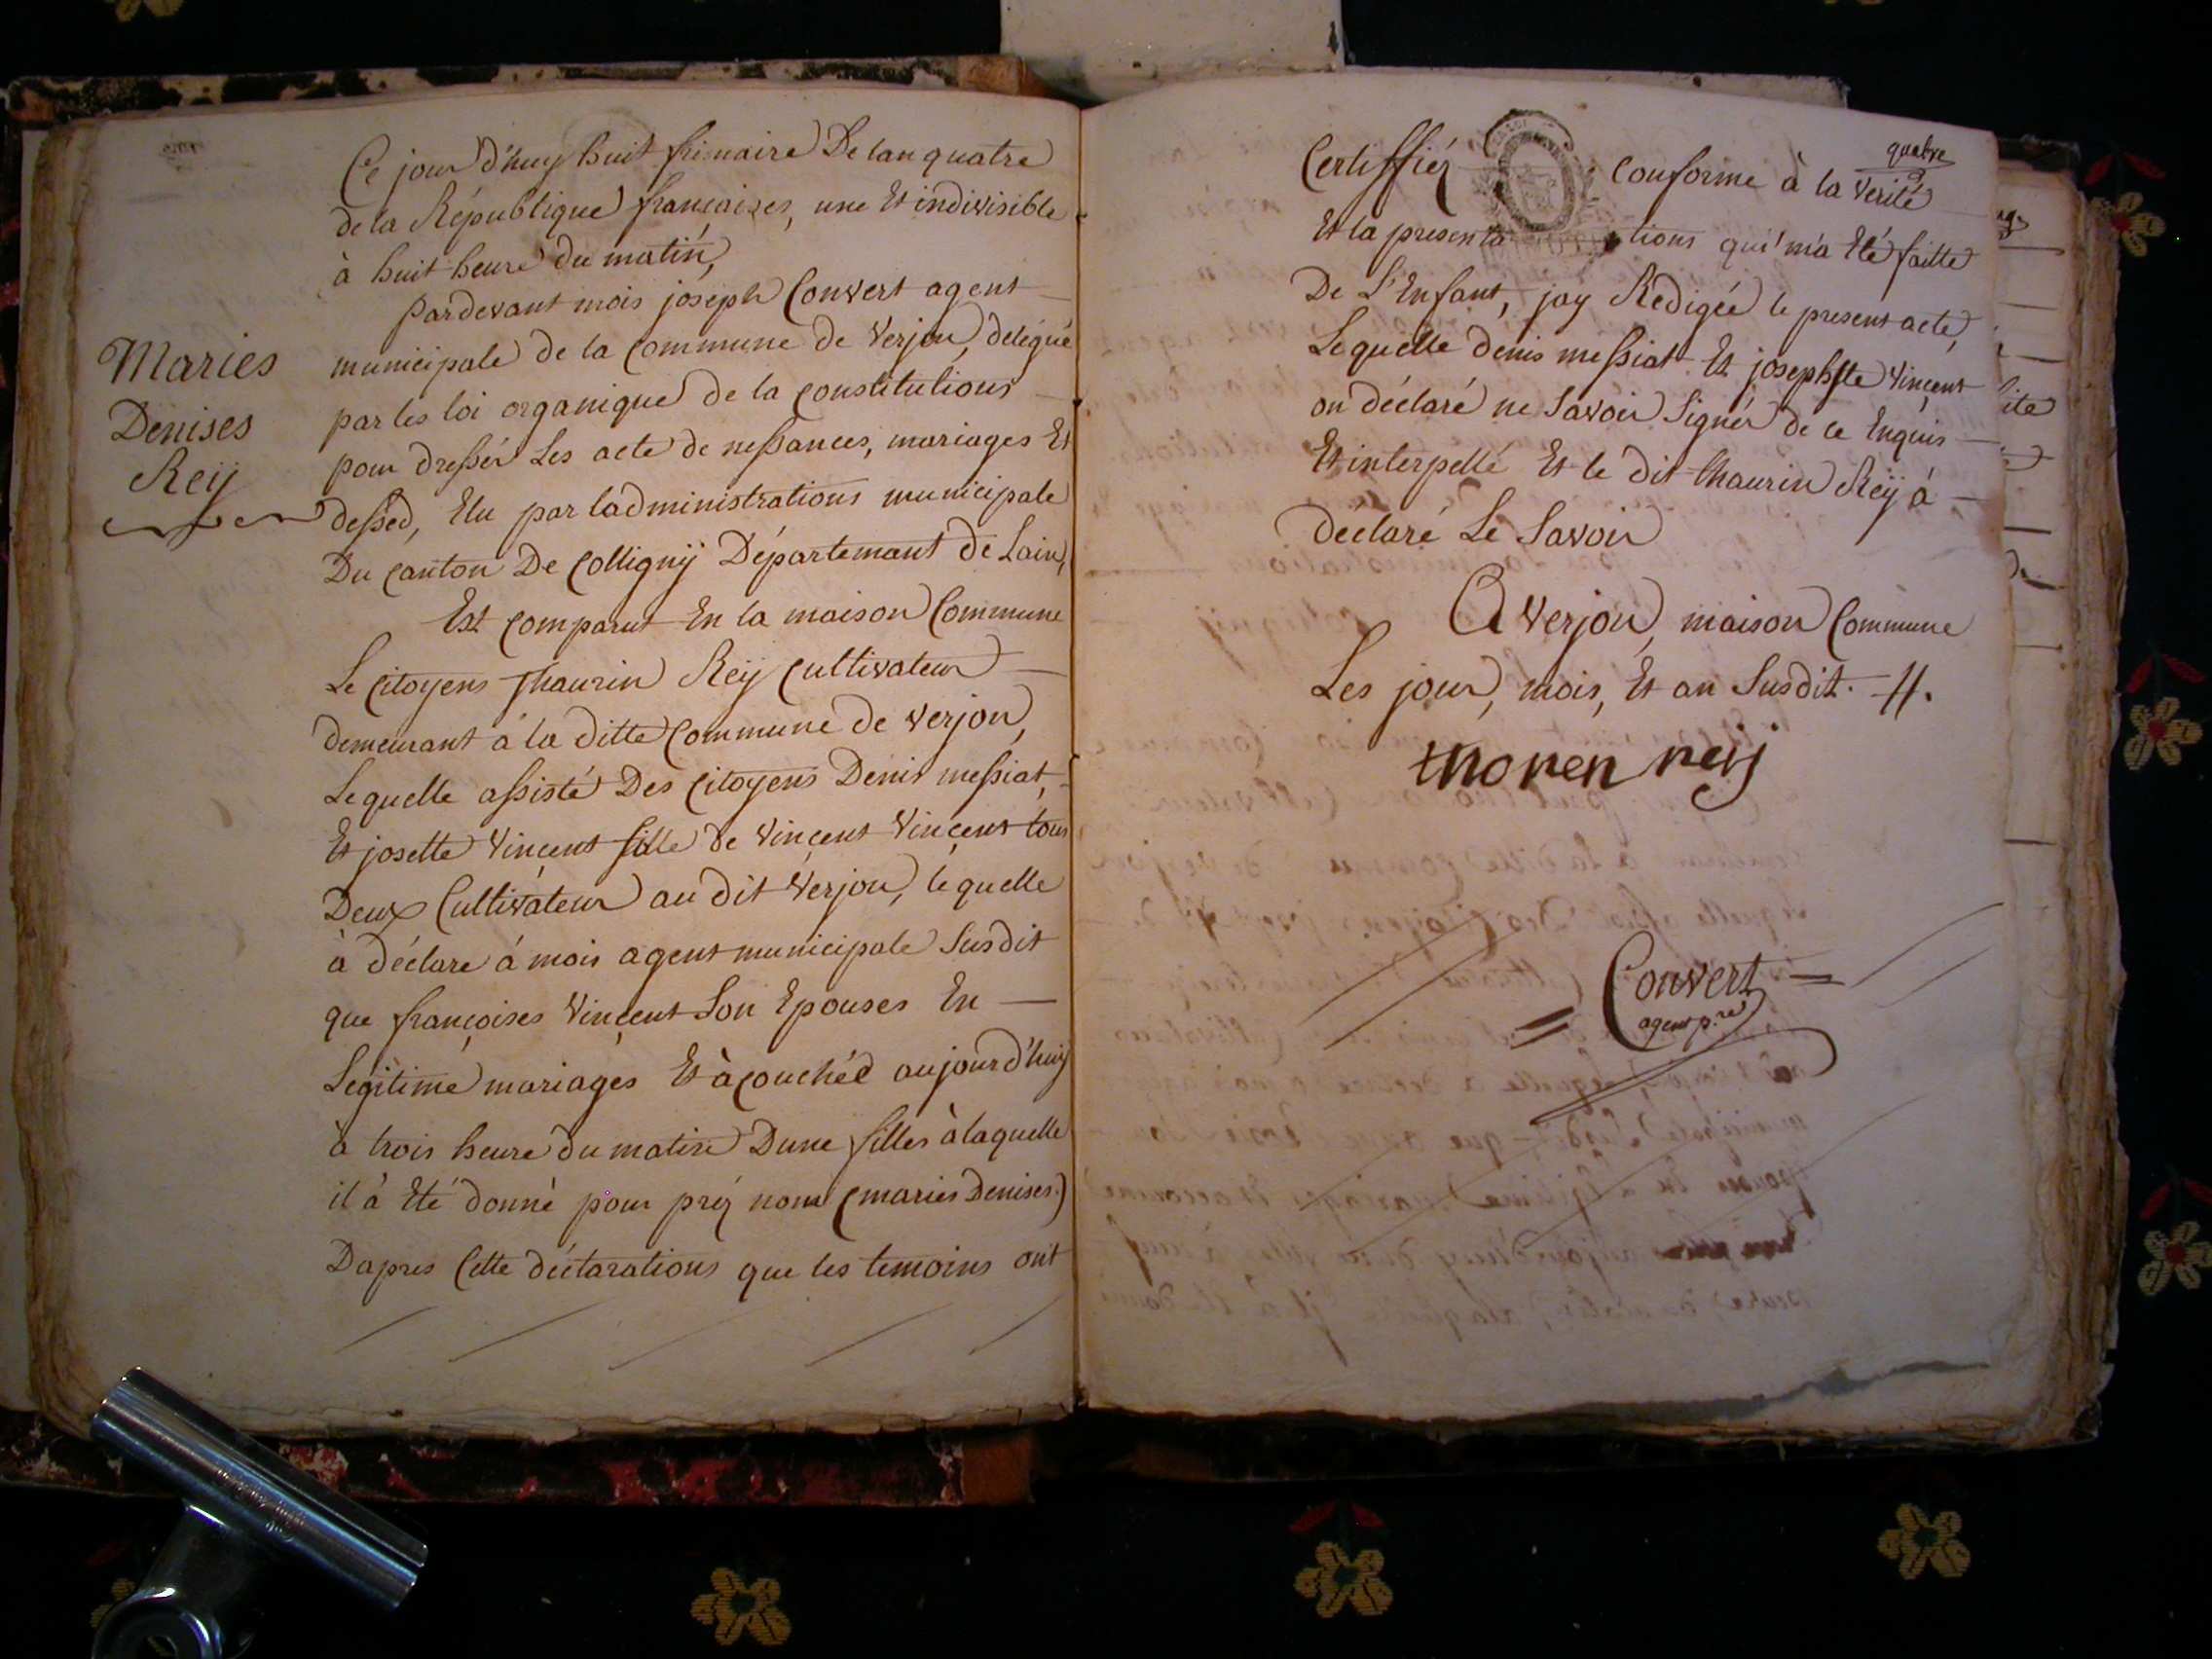 Ce jour d'huy huit frimaire De lan quatre
de la République françaises, une Et indivisible
à huit heure du matin,
pardevant mois joseph Convert agent
municipale de la Commune de Verjon, délégué
par les loi organique de la constitutions
pour dresser Les acte de nessances, mariages Et
desséd, Elu par ladministrations municipale
Du Canton De Colligny Départemant de Lain,
Est comparut En la maison Commune
Le Citoyens Thaurin Reÿ Cultivateur
demeurant à la ditte Commune de Verjon,
Lequelle assisté Des Citoyens Denis messiat,
Et josette Vincent fille de Vincent Vincent tous
Deux Cultivateur au dit Verjon, lequelle
à déclare à mois agent municipale Susdit
que françoises Vincent Son Epouses En
Legitime mariages Et àcouchéé aujourd'huy
à trois heure du matin Dune filles àlaquelle
il à Eté donné pour préz nom (maries Denises.)
Dapres Cette déclarations que les temoins ont
Maries
Denises
Reÿ
quatre
Certiffiéz conforme à la Verité
Et la presentations qui m'a Eté faitte
De L'Enfant, jay Redigéé le present acte,
Lequelle denis messiat Et josephte Vincent
on déclaré ne Savoir Signér de ce Enquis
Et interpellé Et le dit thaurin Reÿ à
déclaré Le Savoir
A Verjon, maison Commune
Les jour, mois, Et an Susdit. //.
thoren reij
Convert
agent p.re